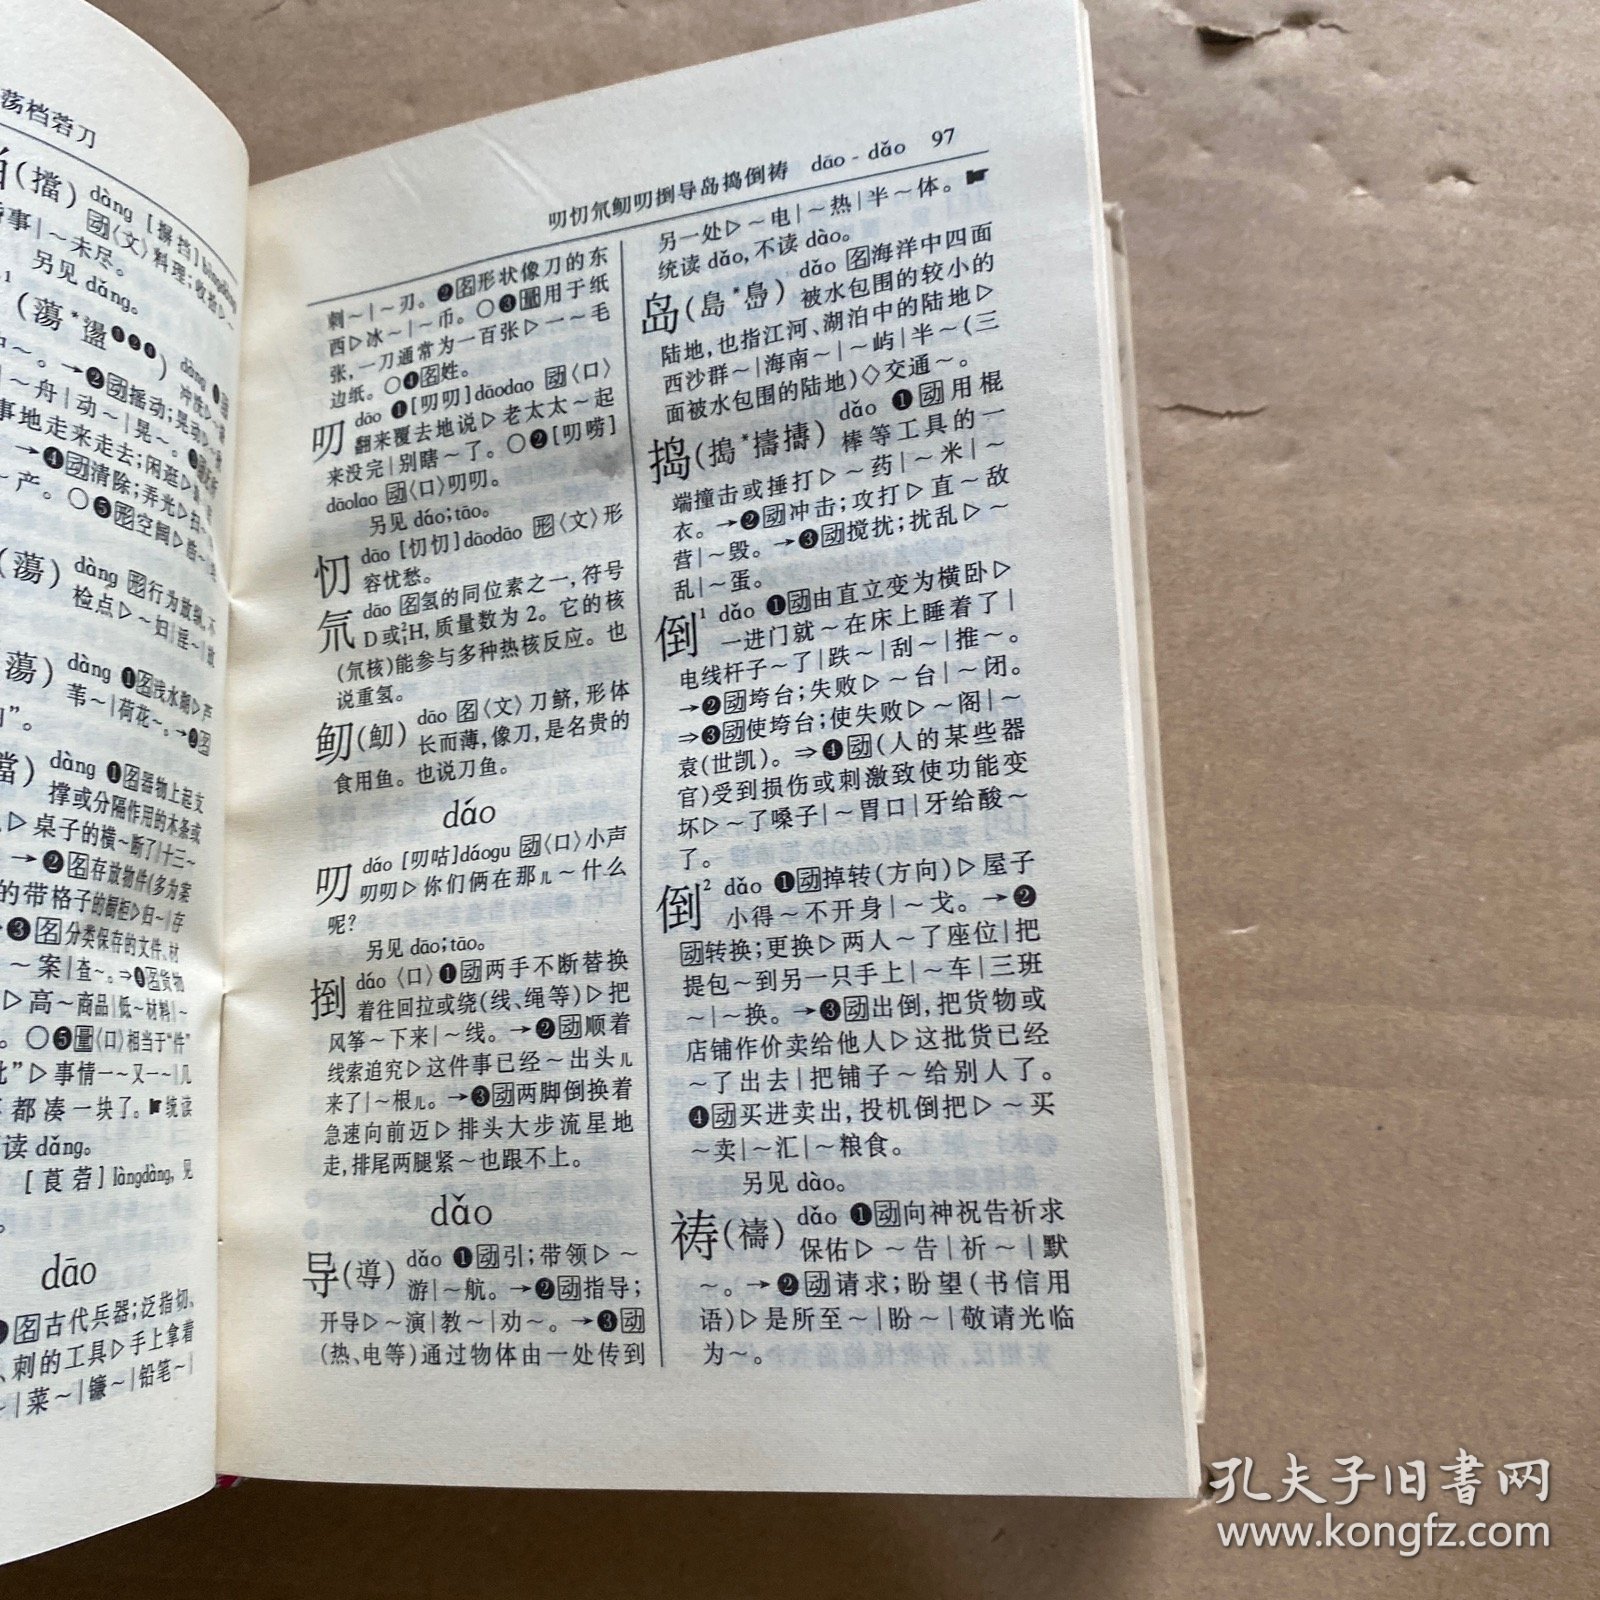 荡档菪刀
(擋) dàng [摒挡]
动〈文〉料理;收拾▷~
事|~未尽。
另见 dǎng。
(蕩*盪❶❷❸)
~。→❷动摇动;晃动▷~
|~舟|动~|晃~。
事地走来走去;闲逛▷
→❹动清除;弄光▷扫~
~产。○❺形空阔▷
(蕩) dàng 形行为放纵,不
检点▷~妇|淫~|放
(蕩) dàng ❶名浅水湖▷芦
苇~|荷花~。→❷名
dàng ❶名器物上起支
撑或分隔作用的木条或
▷桌子的横~断了|十三~
→❷名存放物件(多为案
的带格子的橱柜▷归~|存
❸名分类保存的文件、材
~案|查~。⇒❹名货物
▷高~商品|低~材料|~
。○❺量〈口〉相当于“件”
▷事情一~又一~|几
都凑一块了。☛统读
读 dǎng。
[莨菪]làngdàng,见
dāo
❶名古代兵器;泛指切、
、刺的工具▷手上拿着
|菜~|镰~|铅笔~|
叨忉氘鱽叨捯导岛捣倒祷 dāo - dǎo 97
刺~|~刃。❷名形状像刀的东
西▷冰~|~币。○❸量用于纸
张,一刀通常为一百张▷一~毛
边纸。○❹名姓。
叨 dāo ❶[叨叨]dāodao 动〈口〉
翻来覆去地说▷老太太~起
来没完|别瞎~了。○❷[叨唠]
dāolao 动〈口〉叨叨。
另见 dáo;tāo。
忉 dāo [忉忉]dāodāo 形〈文〉形
容忧愁。
氘 dāo 名氢的同位素之一,符号
D 或²₁H,质量数为 2。它的核
(氘核)能参与多种热核反应。也
说重氢。
鱽(魛) dāo 名〈文〉刀鲚,形体
长而薄,像刀,是名贵的
食用鱼。也说刀鱼。
dáo
叨 dáo [叨咕]dáogu 动〈口〉小声
叨叨▷你们俩在那儿~什么
呢?
另见 dāo;tāo。
捯 dáo〈口〉❶动两手不断替换
着往回拉或绕(线、绳等)▷把
风筝~下来|~线。→❷动顺着
线索追究▷这件事已经~出头儿
来了|~根儿。→❸动两脚倒换着
急速向前迈▷排头大步流星地
走,排尾两腿紧~也跟不上。
dǎo
导(導) dǎo ❶动引;带领▷~
游|~航。→❷动指导;
开导▷~演|教~|劝~。→❸动
(热、电等)通过物体由一处传到
另一处▷~电|~热|半~体。☛
统读 dǎo,不读 dào。
岛(島*㠀) dǎo 名海洋中四面
被水包围的较小的
陆地,也指江河、湖泊中的陆地▷
西沙群~|海南~|~屿|半~(三
面被水包围的陆地)◇交通~。
捣(搗*擣擣) dǎo ❶动用棍
棒等工具的一
端撞击或捶打▷~药|~米|~
衣。→❷动冲击;攻打▷直~敌
营|~毁。→❸动搅扰;扰乱▷~
乱|~蛋。
倒¹ dǎo ❶动由直立变为横卧▷
一进门就~在床上睡着了|
电线杆子~了|跌~|刮~|推~。
→❷动垮台;失败▷~台|~闭。
⇒❸动使垮台;使失败▷~阁|~
袁(世凯)。⇒❹动(人的某些器
官)受到损伤或刺激致使功能变
坏▷~了嗓子|~胃口|牙给酸~
了。
倒² dǎo ❶动掉转(方向)▷屋子
小得~不开身|~戈。→❷
动转换;更换▷两人~了座位|把
提包~到另一只手上|~车|三班
~|~换。→❸动出倒,把货物或
店铺作价卖给他人▷这批货已经
~了出去|把铺子~给别人了。
❹动买进卖出,投机倒把▷~买
~卖|~汇|~粮食。
另见 dào。
祷(禱) dǎo ❶动向神祝告祈求
保佑▷~告|祈~|默
~。→❷动请求;盼望(书信用
语)▷是所至~|盼~|敬请光临
为~。
孔夫子旧书网
www.kongfz.com